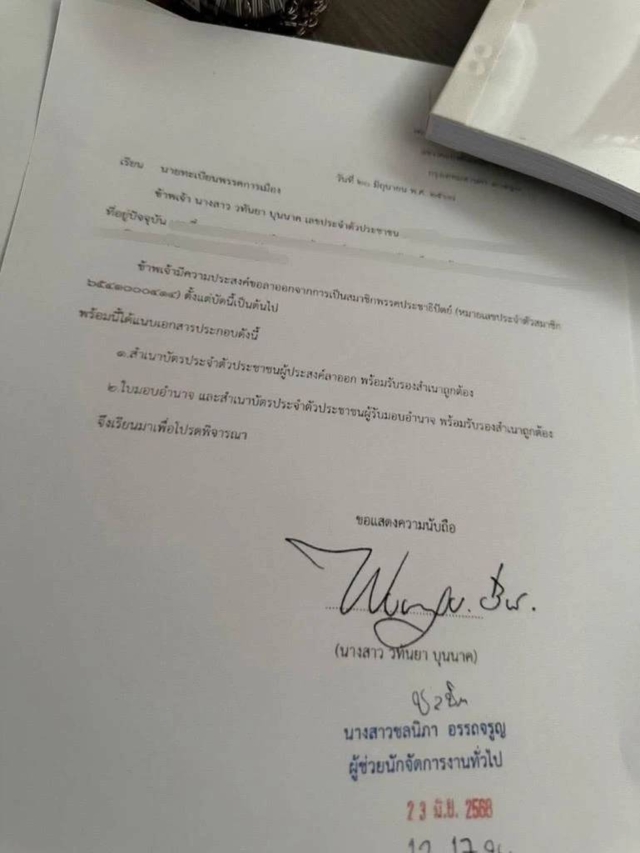 เรียน นายทะเบียนพรรคการเมือง
วันที่ ๒๐ มิถุนายน พ.ศ.
ข้าพเจ้า นางสาว วทันยา บุนนาค เลขประจำตัวประชาชน
ที่อยู่ปัจจุบัน
ข้าพเจ้ามีความประสงค์ขอลาออกจากการเป็นสมาชิกพรรคประชาธิปัตย์ (หมายเลขประจำตัวสมาชิก
ตั้งแต่บัดนี้เป็นต้นไป
พร้อมนี้ได้แนบเอกสารประกอบดังนี้
๑.สำเนาบัตรประจำตัวประชาชนผู้ประสงค์ลาออก พร้อมรับรองสำเนาถูกต้อง
๒.ใบมอบอำนาจ และสำเนาบัตรประจำตัวประชาชนผู้รับมอบอำนาจ พร้อมรับรองสำเนาถูกต้อง
จึงเรียนมาเพื่อโปรดพิจารณา
ขอแสดงความนับถือ
(นางสาว วทันยา บุนนาค)
นางสาวชลนิภา อรรถจรูญ
ผู้ช่วยนักจัดการงานทั่วไป
23 มิ.ย. 2568